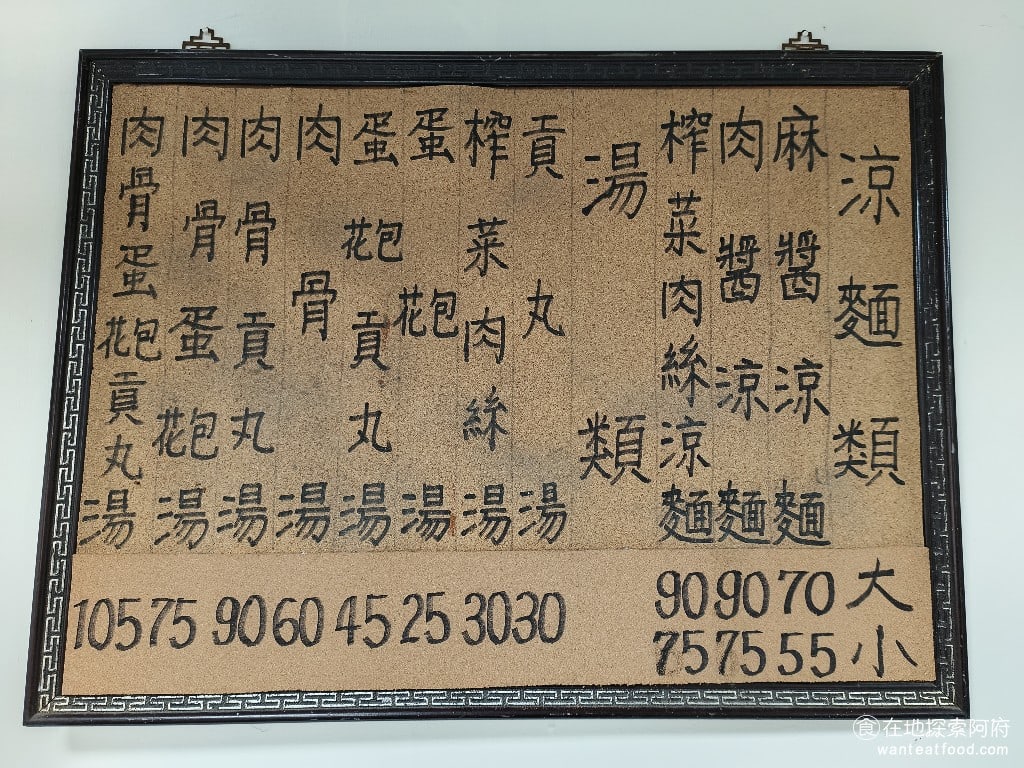 涼麵類 大 小
麻醬涼麵 70 55
肉醬涼麵 90 75
榨菜肉絲涼麵 90 75
湯類
貢丸湯 30
榨菜肉絲湯 30
蛋花包湯 25
蛋花包貢丸湯 45
肉骨湯 60
肉骨貢丸湯 90
肉骨蛋花包湯 75
肉骨蛋花包貢丸湯 105
食在地探索阿府
wanteatfood.com